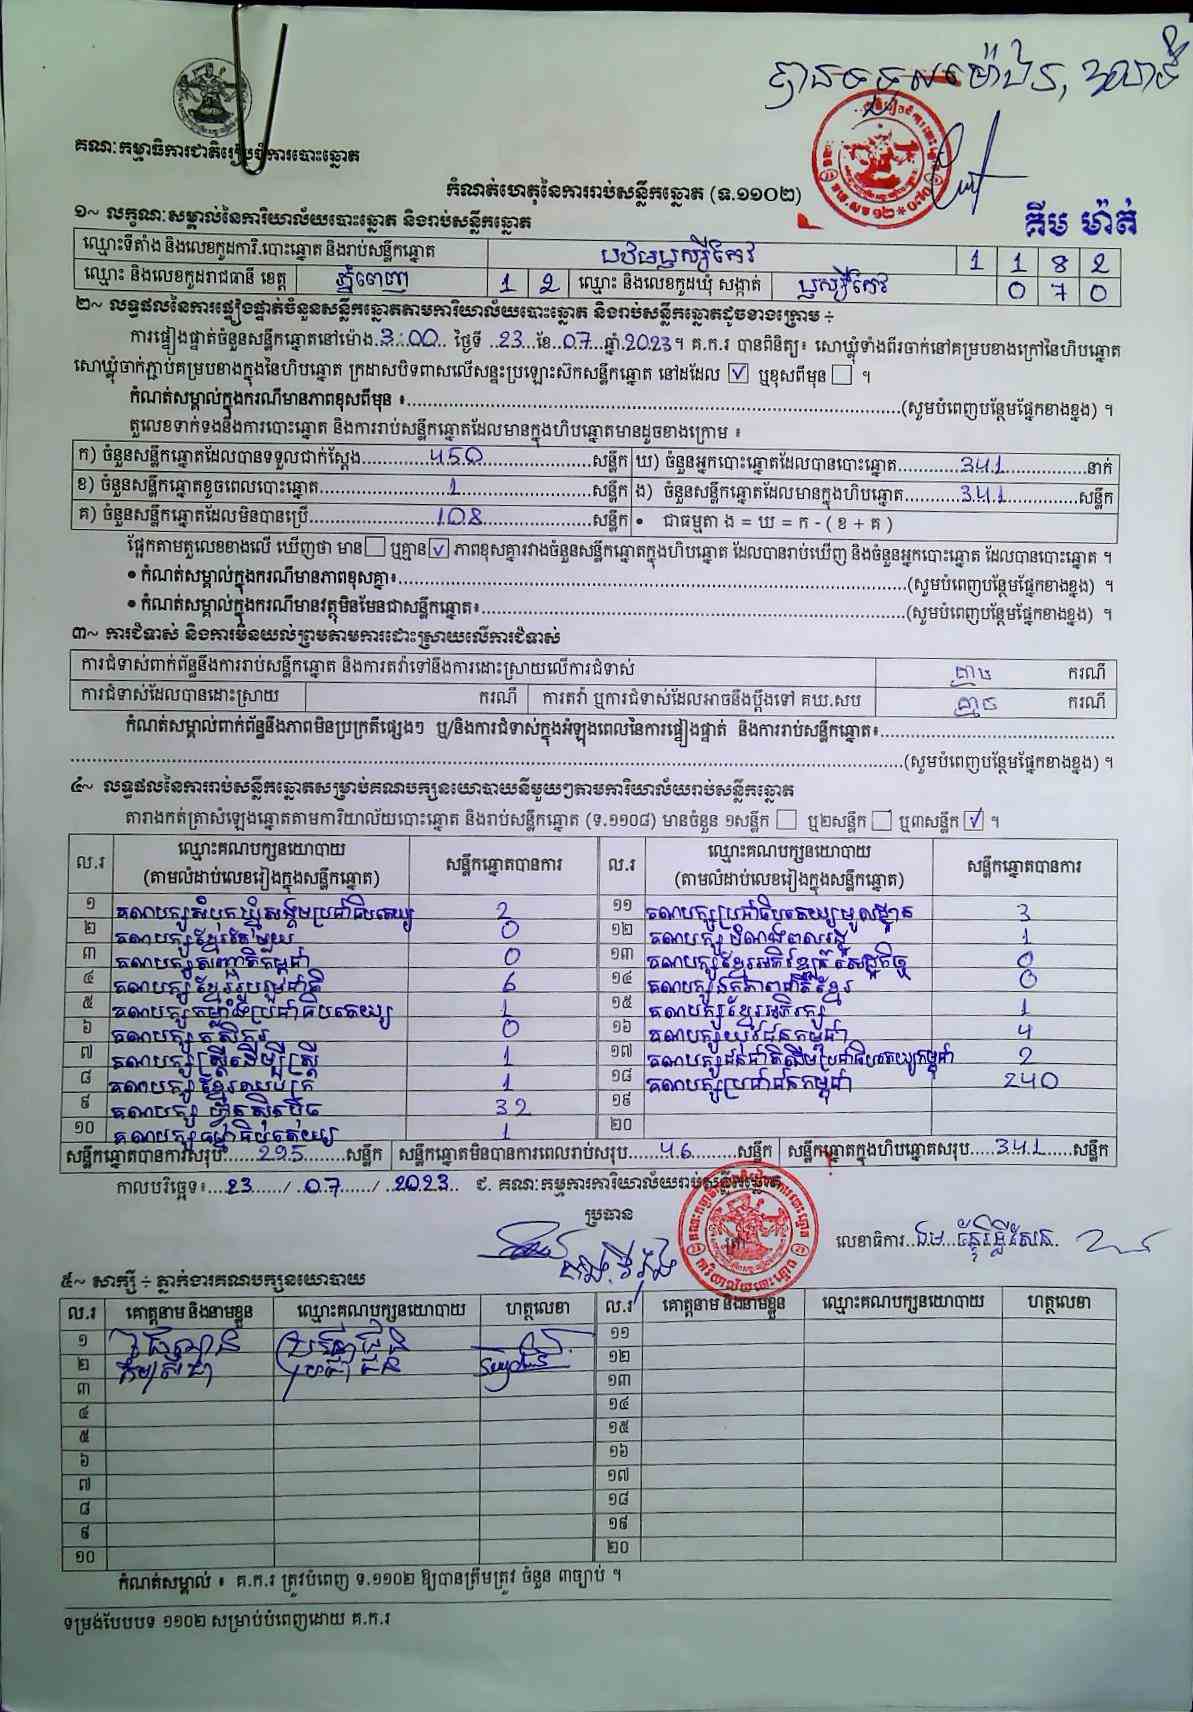 គណៈកម្មាធិការជាតិរៀបចំការបោះឆ្នោត
កំណត់ហេតុនៃការរាប់សន្លឹកឆ្នោត (ទ.១១០២)
គីម ម៉ាត់
១~ លក្ខណៈសម្គាល់នៃការិយាល័យបោះឆ្នោត និងរាប់សន្លឹកឆ្នោត
ឈ្មោះទីតាំង និងលេខកូដការិ.បោះឆ្នោត និងរាប់សន្លឹកឆ្នោត 1 1 8 2
ឈ្មោះ និងលេខកូដរាជធានី ខេត្ត ភ្នំពេញ 1 2 ឈ្មោះ និងលេខកូដឃុំ សង្កាត់ ឫស្សីកែវ 0 7 0
២~ លទ្ធផលនៃការផ្ទៀងផ្ទាត់ចំនួនសន្លឹកឆ្នោតតាមការិយាល័យបោះឆ្នោត និងរាប់សន្លឹកឆ្នោតដូចខាងក្រោម ÷
ការផ្ទៀងផ្ទាត់ចំនួនសន្លឹកឆ្នោតនៅម៉ោង.3:00.. ថ្ងៃទី ..23...ខែ..07...ឆ្នាំ.2023។ គ.ក.រ បានពិនិត្យ៖ សោឃ្លុំទាំងពីរចាក់នៅគម្របខាងក្រៅនៃហិបឆ្នោត
សោឃ្លុំចាក់ភ្ជាប់គម្របខាងក្នុងនៃហិបឆ្នោត ក្រដាសបិទពាសលើសន្ទះប្រឡោះស៊កសន្លឹកឆ្នោត នៅដដែល ☑ ឬខុសពីមុន ☐ ។
កំណត់សម្គាល់ក្នុងករណីមានភាពខុសពីមុន ៖.....(សូមបំពេញបន្ថែមផ្នែកខាងខ្នង) ។
តួលេខទាក់ទងនឹងការបោះឆ្នោត និងការរាប់សន្លឹកឆ្នោតដែលមានក្នុងហិបឆ្នោតមានដូចខាងក្រោម ៖
ក) ចំនួនសន្លឹកឆ្នោតដែលបានទទួលជាក់ស្តែង.....450.....សន្លឹក ឃ) ចំនួនអ្នកបោះឆ្នោតដែលបានបោះឆ្នោត.....341.....នាក់
ខ) ចំនួនសន្លឹកឆ្នោតខូចពេលបោះឆ្នោត.....1.....សន្លឹក ង) ចំនួនសន្លឹកឆ្នោតដែលមានក្នុងហិបឆ្នោត.....341.....សន្លឹក
គ) ចំនួនសន្លឹកឆ្នោតដែលមិនបានប្រើ.....108.....សន្លឹក • ជាធម្មតា ង = ឃ = ក - ( ខ + គ )
ផ្អែកតាមតួលេខខាងលើ ឃើញថា មាន ☐ ឬគ្មាន ☑ ភាពខុសគ្នារវាងចំនួនសន្លឹកឆ្នោតក្នុងហិបឆ្នោត ដែលបានរាប់ឃើញ និងចំនួនអ្នកបោះឆ្នោត ដែលបានបោះឆ្នោត ។
• កំណត់សម្គាល់ក្នុងករណីមានភាពខុសគ្នា៖.....(សូមបំពេញបន្ថែមផ្នែកខាងខ្នង) ។
• កំណត់សម្គាល់ក្នុងករណីមានវត្ថុមិនមែនជាសន្លឹកឆ្នោត៖.....(សូមបំពេញបន្ថែមផ្នែកខាងខ្នង) ។
៣~ ការជំទាស់ និងការមិនយល់ព្រមតាមការដោះស្រាយលើការជំទាស់
ការជំទាស់ពាក់ព័ន្ធនឹងការរាប់សន្លឹកឆ្នោត និងការតវ៉ាទៅនឹងការដោះស្រាយលើការជំទាស់ គ្មាន ករណី
ការជំទាស់ដែលបានដោះស្រាយ ករណី ការតវ៉ា ឬការជំទាស់ដែលអាចនឹងប្តឹងទៅ គឃ.សប គ្មាន ករណី
កំណត់សម្គាល់ពាក់ព័ន្ធនឹងភាពមិនប្រក្រតីផ្សេងៗ ឬ/និងការជំទាស់ក្នុងអំឡុងពេលនៃការផ្ទៀងផ្ទាត់ និងការរាប់សន្លឹកឆ្នោត៖.....
.....(សូមបំពេញបន្ថែមផ្នែកខាងខ្នង) ។
៤~ លទ្ធផលនៃការរាប់សន្លឹកឆ្នោតសម្រាប់គណបក្សនយោបាយនីមួយៗតាមការិយាល័យរាប់សន្លឹកឆ្នោត
តារាងកត់ត្រាសំឡេងឆ្នោតតាមការិយាល័យបោះឆ្នោត និងរាប់សន្លឹកឆ្នោត (ទ.១១០៨) មានចំនួន ១សន្លឹក ☐ ឬ២សន្លឹក ☐ ឬ៣សន្លឹក ☑ ។
ល.រ ឈ្មោះគណបក្សនយោបាយ (តាមលំដាប់លេខរៀងក្នុងសន្លឹកឆ្នោត) សន្លឹកឆ្នោតបានការ ល.រ ឈ្មោះគណបក្សនយោបាយ (តាមលំដាប់លេខរៀងក្នុងសន្លឹកឆ្នោត) សន្លឹកឆ្នោតបានការ
១ គណបក្សសំបុកឃ្មុំសង្គមប្រជាធិបតេយ្យ 2 ១១ គណបក្សប្រជាធិបតេយ្យមូលដ្ឋាន 3
២ គណបក្សខ្មែរតែមួយ 0 ១២ គណបក្ស 1
៣ គណបក្សសញ្ជាតិកម្ពុជា 0 ១៣ គណបក្សខ្មែរអភិវឌ្ឍន៍សេដ្ឋកិច្ច 0
៤ គណបក្សខ្មែររួបរួមជាតិ 6 ១៤ គណបក្សឯកភាពជាតិខ្មែរ 0
៥ គណបក្សកម្លាំងប្រជាធិបតេយ្យ 1 ១៥ គណបក្សខ្មែរអភិរក្ស 1
៦ គណបក្សកសិករ 0 ១៦ គណបក្សយុវជនកម្ពុជា 4
៧ គណបក្សស្ត្រីដើម្បីស្ត្រី 1 ១៧ គណបក្សជនជាតិដើមប្រជាធិបតេយ្យកម្ពុជា 2
៨ គណបក្សខ្មែរឈប់ក្រ 1 ១៨ គណបក្សប្រជាជនកម្ពុជា 240
៩ គណបក្សហ្វ៊ុនស៊ិនប៉ិច 32 ១៩
១០ គណបក្សធម្មាធិបតេយ្យ 1 ២០
សន្លឹកឆ្នោតបានការសរុប.....295.....សន្លឹក សន្លឹកឆ្នោតមិនបានការពេលរាប់សរុប.....46.....សន្លឹក សន្លឹកឆ្នោតក្នុងហិបឆ្នោតសរុប.....341.....សន្លឹក
កាលបរិច្ឆេទ៖...23....../...07....../...2023.. ជ. គណៈកម្មការការិយាល័យរាប់សន្លឹកឆ្នោត
ប្រធាន
លេខាធិការ..
៥~ សាក្សី ÷ ភ្នាក់ងារគណបក្សនយោបាយ
ល.រ គោត្តនាម និងនាមខ្លួន ឈ្មោះគណបក្សនយោបាយ ហត្ថលេខា ល.រ គោត្តនាម និងនាមខ្លួន ឈ្មោះគណបក្សនយោបាយ ហត្ថលេខា
១ ១១
២ ប្រជាជន ១២
៣ ១៣
៤ ១៤
៥ ១៥
៦ ១៦
៧ ១៧
៨ ១៨
៩ ១៩
១០ ២០
កំណត់សម្គាល់ ៖ គ.ក.រ ត្រូវបំពេញ ទ.១១០២ ឱ្យបានត្រឹមត្រូវ ចំនួន ៣ច្បាប់ ។
ទម្រង់បែបបទ ១១០២ សម្រាប់បំពេញដោយ គ.ក.រ